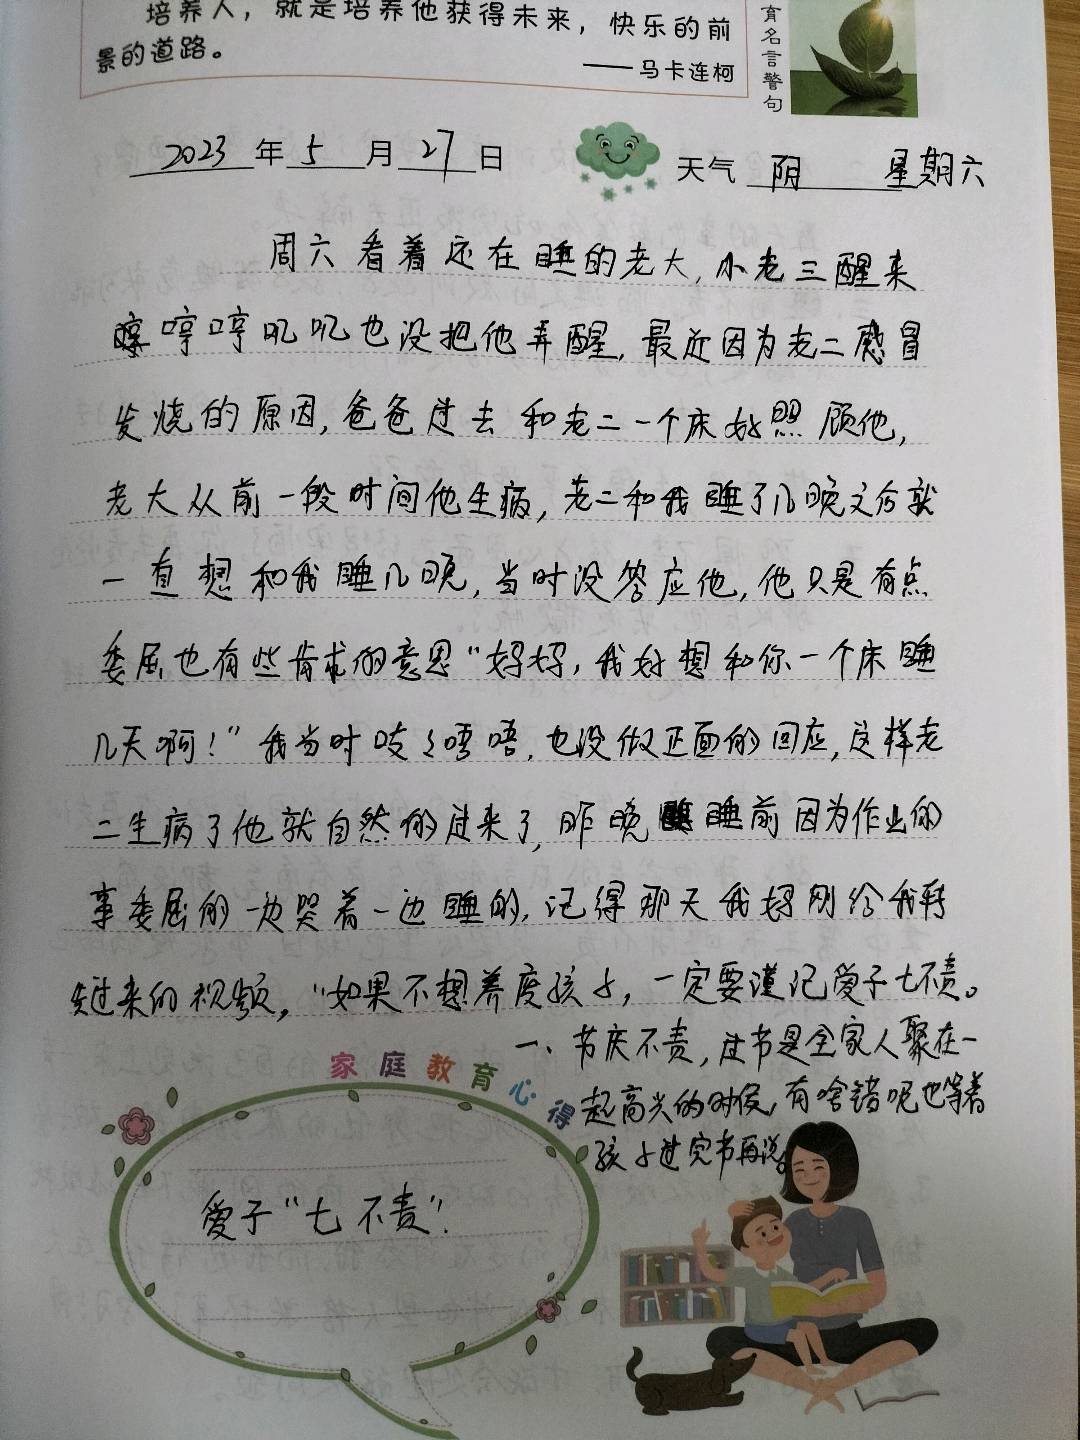 培养人，就是培养他获得未来，快乐的前
景的道路。
——马卡连柯
育名言警句
2023年5月27日 天气 阴 星期六
周六看着还在睡的老大，小老三醒来
哼哼叽叽也没把他弄醒，最近因为老二感冒
发烧的原因，爸爸过去和老二一个床好照顾他，
老大从前一段时间他生病，老二和我睡了几晚之后就
一直想和我睡几晚，当时没答应他，他只是有点
委屈也有些肯求的意思“妈妈，我好想和你一个床睡
几天啊！”我当时吱〻唔唔，也没做正面的回应，这样老
二生病了他就自然的过来了，昨晚睡前因为作业的
事委屈的一边哭着一边睡的，记得那天我妈刚给我转
发过来的视频，“如果不想养废孩子，一定要谨记爱子七不责。
一、节庆不责，过节是全家人聚在一
起高兴的时侯，有啥错呢也等着
孩子过完节再说。
家庭教育心得
爱子“七不责”！